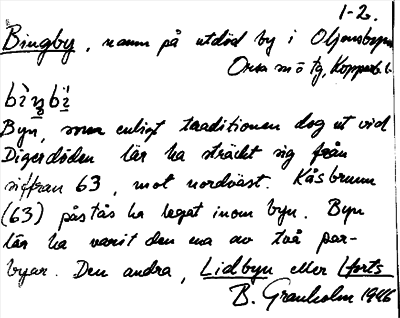 1-2.
Bingby, namn på utdöd by i Oljonsbyn
Orsa m ö tg, Kopparb. l.
Byn, som enligt traditionen dog ut vid
Digerdöden lär ha sträckt sig från
siffran 63, mot nordväst. Kåsbrunn
(63) påstås ha legat inom byn. Byn
lär ha varit den ena av två par-
byar. Den andra, Lidbyn eller
B. Granholm 1946